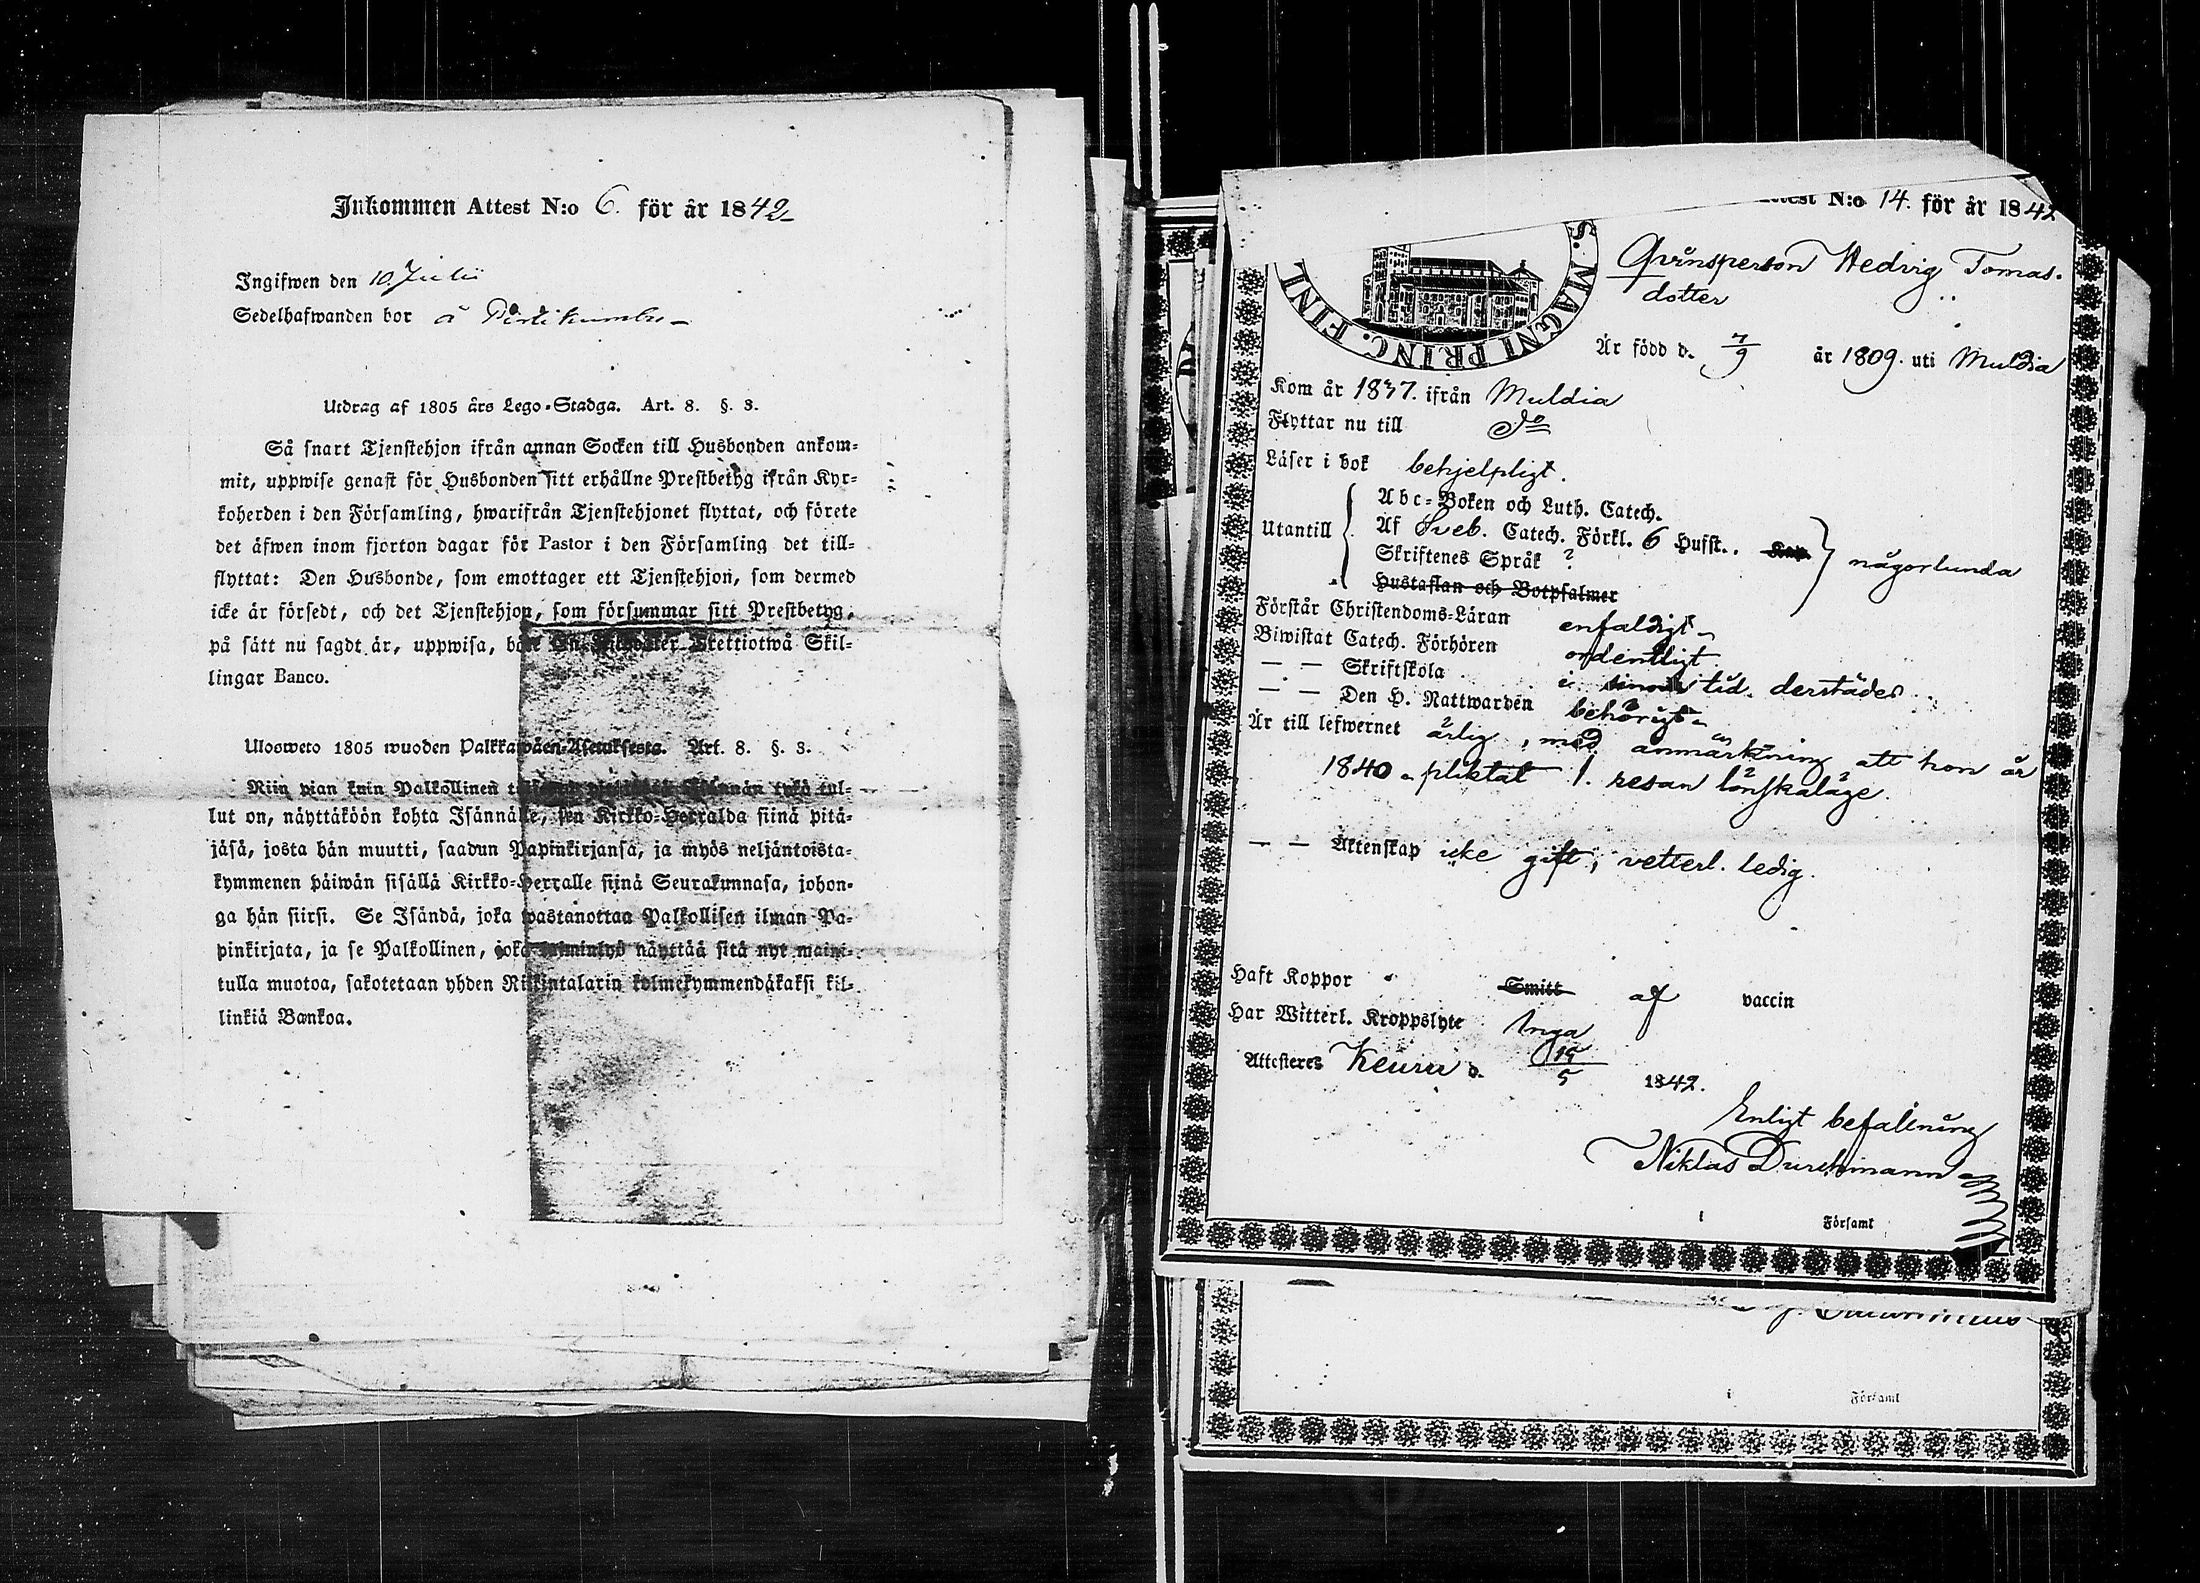 Inkommen Attest N:o 6. för år 1842
Ingifwen den 10. Julii
Sedelhafwanden bor å
Utdrag af 1805 års Lego-Stadga. Art. 8. §. 3.
Så snart Tjenstehjon ifrån annan Socken till Husbonden ankom-
mit, uppwise genast för Husbonden sitt erhållne Prestbetyg ifrån Kyr-
koherden i den Församling, hwarifrån Tjenstehjonet flyttat, och förete
det äfwen inom fjorton dagar för Pastor i den Församling det till-
flyttat: Den Husbonde, som emottager ett Tjenstehjon, som dermed
icke är försedt, och det Tjenstehjon, som försummar sitt Prestbetyg,
på sätt nu sagdt är, uppwisa, böte En Riksdaler Trettiotwå Skil-
lingar Banco.
Ulosweto 1805 wuoden Palkkawäen-Asetuksesta. Art. 8. §. 3.
Niin pian kuin Palkollinen Isännän tykö tul-
lut on, näyttäköön kohta Isännälle, sen Kirkko-Herralda siinä pitä-
jäsä, josta hän muutti, saadun Papinkirjansa, ja myös neljäntoista-
kymmenen päiwän sisällä Kirkko-Herralle siinä Seurakunnasa, johon-
ga hän siirsi. Se Isändä, joka wastanottaa Palkollisen ilman Pa-
pinkirjata, ja se Palkollinen, joka laiminlyö näyttää sitä nyt maini-
tulla muotoa, sakotetaan yhden Riikintalarin kolmekymmendäkaksi kil-
linkiä Bankoa.
Attest N:o 14. för år 1842
S. MAGNI PRINC. FINL
Qvinsperson Hedvig Tomas-
dotter
Är född d. 7/9 år 1809. uti Muldia
Kom år 1837. ifrån Muldia
Flyttar nu till do
Läser i bok behjelpligt.
Utantill
Abc-Boken och Luth. Catech.
Af Sveb. Catech. Förkl. 6 Hufst. Kap.
Skriftenes Språk ?
Hustaflan och Botpsalmer
någorlunda
Förstår Christendoms-Läran enfaldigt
Biwistat Catech. Förhören ordentligt.
— — Skriftskola i sinom tid. derstädes
— — Den H. Nattwarden behörigt
Är till lefwernet ärlig, med anmärkning att hon är
1840 pliktat 1. resan lönskaläge.
— — Äktenskap icke gift, vetterl. ledig.
Haft Koppor Smitt af vaccin
Har Witterl. Kroppslyte Inga
Attesteres Keuru d. 19/5 1842.
Enligt befallning
Niklas Durchmann
i Församl
i Församl